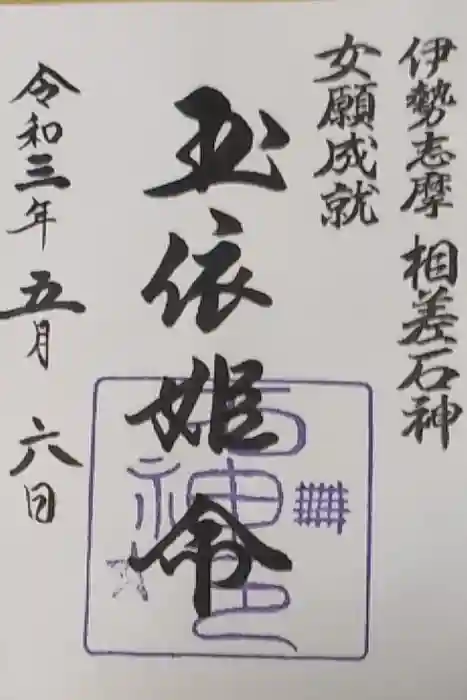 伊勢志摩 相差石神
女願成就
玉依姫命
令和三年 五月 六日
石神さん